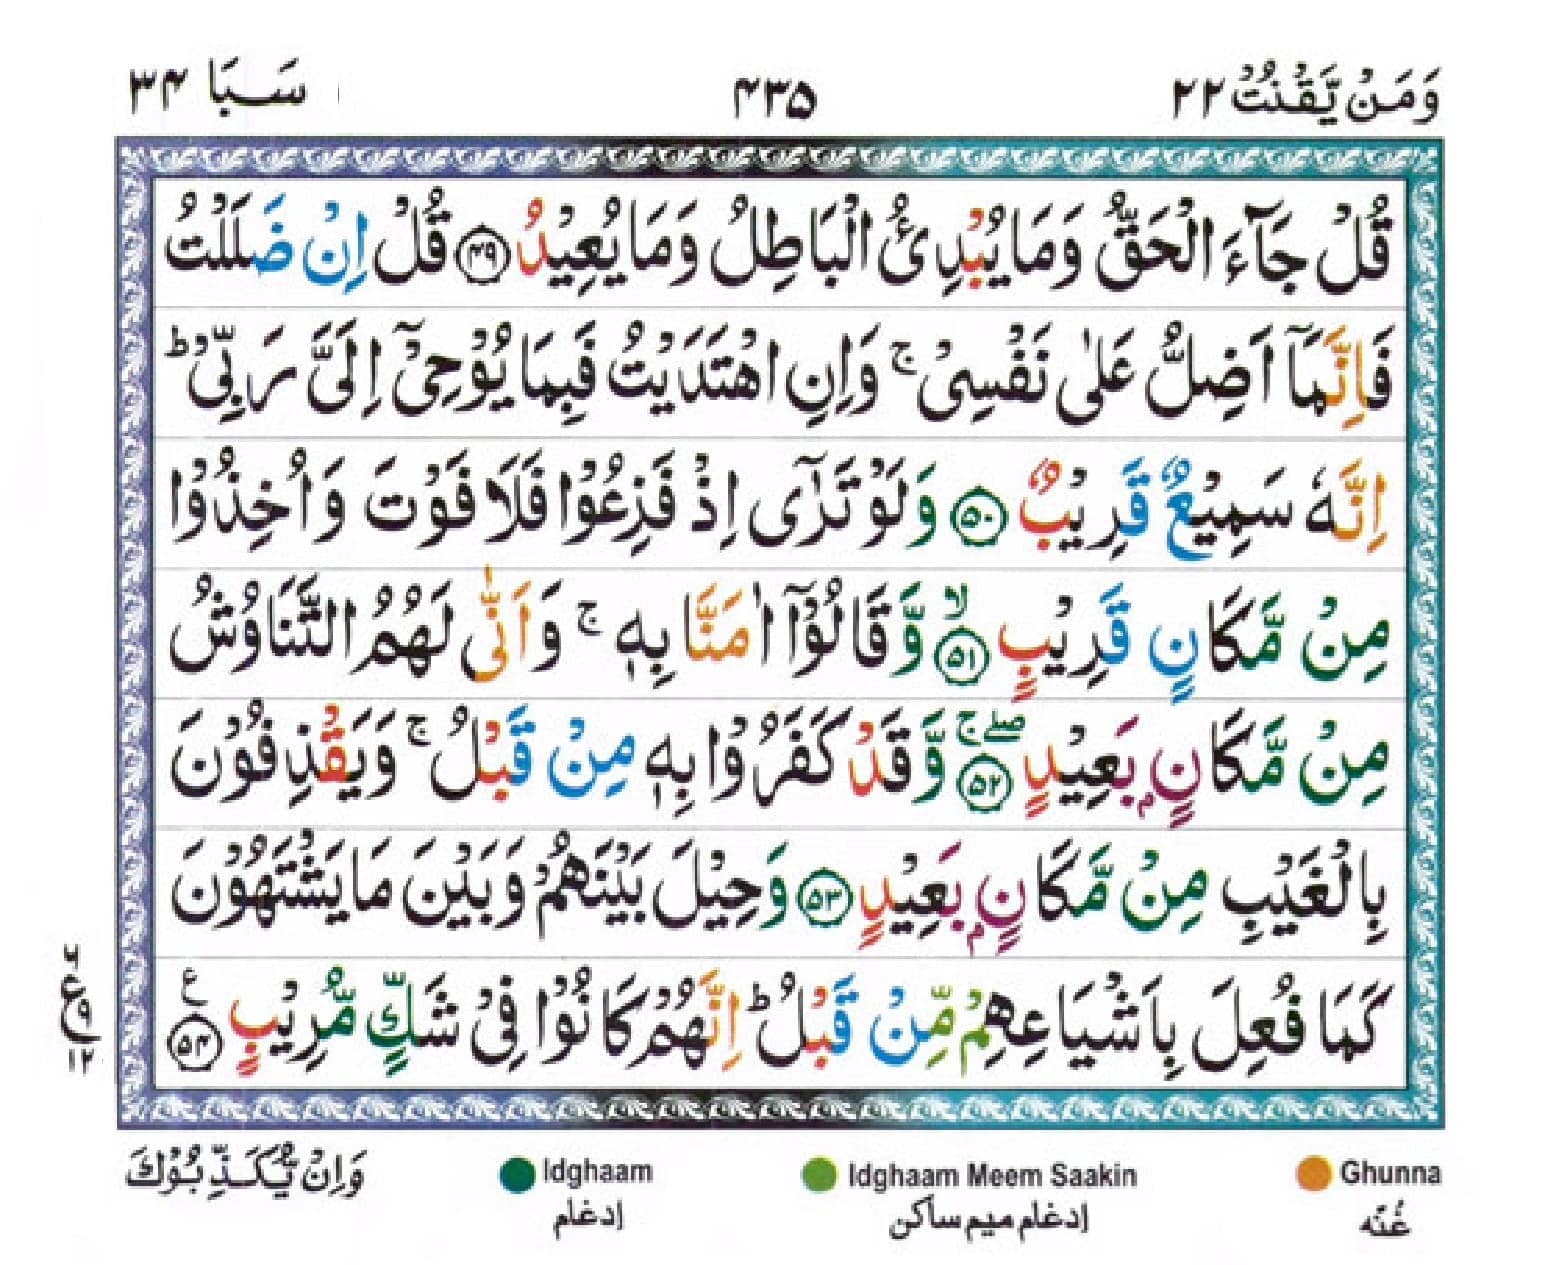 وَمَنْ يَّقْنُتْ ٢٢
٤٣٥
سَبَا ٣٤
قُلْ جَآءَ الْحَقُّ وَمَا يُبْدِئُ الْبَاطِلُ وَمَا يُعِيْدُ ۴۹ قُلْ اِنْ ضَلَلْتُ
فَاِنَّمَآ اَضِلُّ عَلٰى نَفْسِیْ ۚ وَاِنِ اهْتَدَيْتُ فَبِمَا يُوْحِیْٓ اِلَیَّ رَبِّیْ ؕ
اِنَّهٗ سَمِيْعٌ قَرِيْبٌ ۵۰ وَلَوْ تَرٰٓى اِذْ فَزِعُوْا فَلَا فَوْتَ وَاُخِذُوْا
مِنْ مَّكَانٍ قَرِيْبٍ ۙ ۵۱ وَّقَالُوْٓا اٰمَنَّا بِهٖ ۚ وَاَنّٰى لَهُمُ التَّنَاوُشُ
مِنْ مَّكَانٍۭ بَعِيْدٍ ۖۚ ۵۲ وَّقَدْ كَفَرُوْا بِهٖ مِنْ قَبْلُ ۚ وَيَقْذِفُوْنَ
بِالْغَيْبِ مِنْ مَّكَانٍۭ بَعِيْدٍ ۵۳ وَحِيْلَ بَيْنَهُمْ وَبَيْنَ مَا يَشْتَهُوْنَ
كَمَا فُعِلَ بِاَشْيَاعِهِمْ مِّنْ قَبْلُ ؕ اِنَّهُمْ كَانُوْا فِیْ شَكٍّ مُّرِيْبٍ ۵۴ ع
ع ۹ ۱۲
Ghunna
غُنّه
Idghaam Meem Saakin
إدغام ميم ساكن
Idghaam
إدغام
وَاِنْ يُّكَذِّبُوْكَ